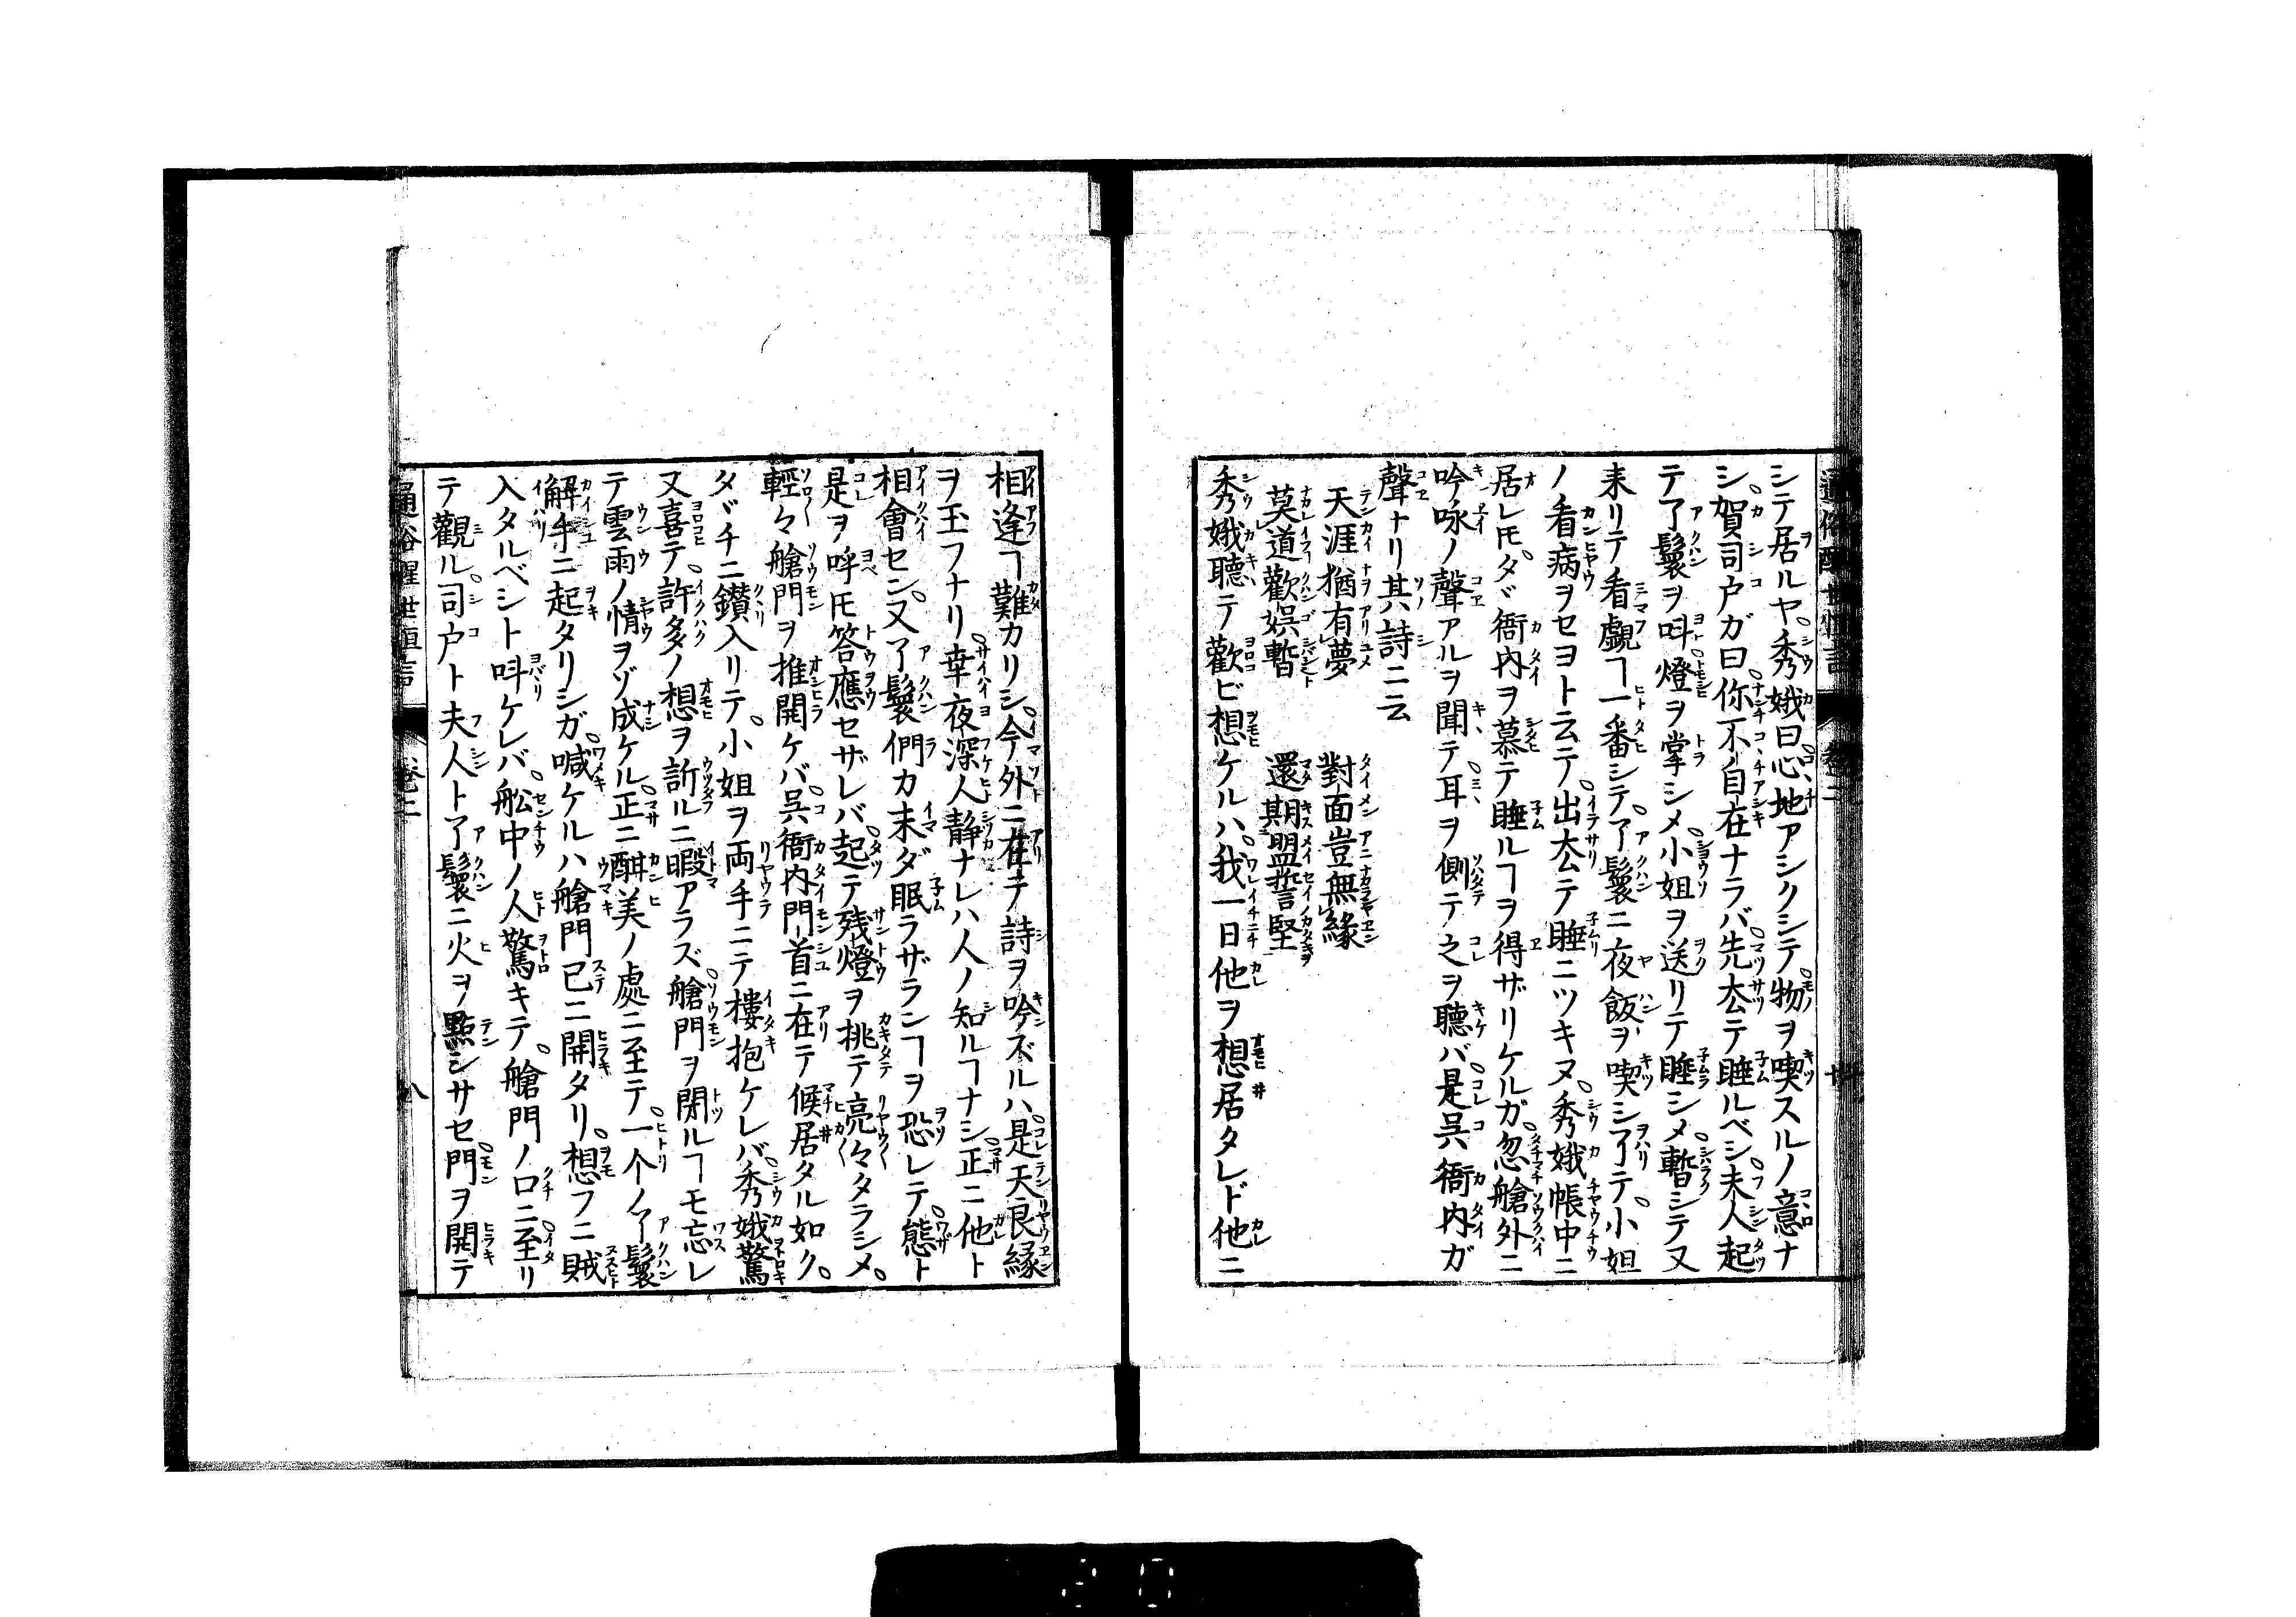 シテ居ルヤ秀娥曰心地アシクシテ物ヲ喫スルノ意ナ
シ賀司户ガ曰你不自在ナラバ先大公テ睡ルベシ夫人起
テ了鬟ヲ呌燈ヲ掌シメ小姐ヲ送リテ睡シメ暫シテ又
来リテ看覷ヿ一番シテ了鬟ニ夜飯ヲ喫シ了テ小姐
ノ看病ヲセヨト云テ出大公テ睡ニツキヌ秀娥帳中ニ
居レ𪜈タヾ衙内ヲ慕テ睡ルヿヲ得ザリケルガ忽艙外ニ
吟咏ノ聲アルヲ聞テ耳ヲ側テ之ヲ聽バ是呉衙内ガ
聲ナリ其詩ニ云
天涯猶有夢　對面豈無縁
莫道歡娯暫　還期盟誓堅
秀娥聽テ歡ビ想ケルハ我一日他ヲ想居タレド他ニ
相逢ヿ難カリシ今外ニ在テ詩ヲ吟ズルハ是天良縁
ヲ玉フナリ幸夜深人静ナレハ人ノ知ルヿナシ正ニ他ト
相會セン又了鬟們カ未ダ眠ラザランヿヲ恐レテ態ト
是ヲ呼𪜈答應セザレバ起テ残燈ヲ挑テ亮々タラシメ
輕々艙門ヲ推開ケバ呉衙内門首ニ在テ候居タル如ク
タヾチニ鑚入リテ小姐ヲ両手ニテ摟抱ケレバ秀娥驚
又喜テ許多ノ想ヲ訴ルニ暇アラズ艙門ヲ閑ルヿモ忘レ
テ雲雨ノ情ヲゾ成ケル正ニ酣美ノ處ニ至テ一个ノ了鬟
解手ニ起タリシガ喊ケルハ艙門已ニ開タリ想フニ賊
入タルベシト呌ケレバ舩中ノ人驚キテ艙門ノ口ニ至リ
テ觀ル司户ト夫人ト了鬟ニ火ヲ㸃シサセ門ヲ開テ
通俗醒世恒言　卷二　八